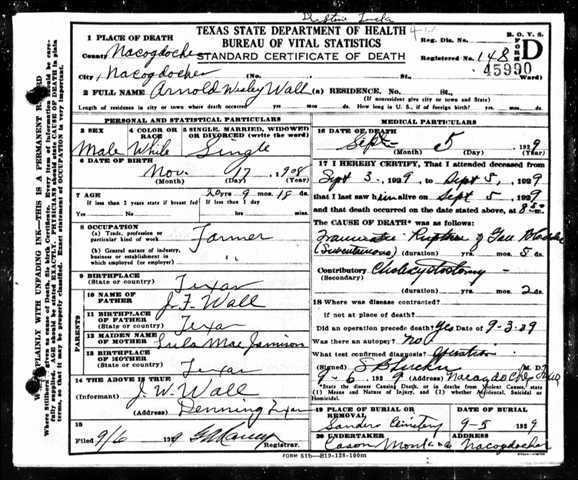 TEXAS STATE DEPARTMENT OF HEALTH
BUREAU OF VITAL STATISTICS
STANDARD CERTIFICATE OF DEATH
Reg. Dis. No.
Registered No. 148
B. O. V. S.
FORM D
45990
1 PLACE OF DEATH
County Nacogdoches
City Nacogdoches (No. St., Ward)
2 FULL NAME Arnold Wesley Wall (a) RESIDENCE. No. St.,
(If nonresident give city or town and State)
Length of residence in city or town where death occurred yrs. mos. ds. How long in U. S., if of foreign birth? yrs. mos. ds.
PERSONAL AND STATISTICAL PARTICULARS
3 SEX Male
4 COLOR OR RACE White
5 SINGLE, MARRIED, WIDOWED OR DIVORCED (write the word) Single
6 DATE OF BIRTH
Nov. 17 1908
(Month) (Day) (Year)
7 AGE 20 yrs. 9 mos. 18 ds.
If less than 2 years state if breast fed If less than 1 day
8 OCCUPATION
(a) Trade, profession or particular kind of work Farmer
(b) General nature of industry, business or establishment in which employed (or employer) " "
9 BIRTHPLACE (State or country) Texas
PARENTS
10 NAME OF FATHER J. F. Wall
11 BIRTHPLACE OF FATHER (State or country) Texas
12 MAIDEN NAME OF MOTHER Lula Mae Jamison
13 BIRTHPLACE OF MOTHER (State or country) Texas
14 THE ABOVE IS TRUE
(Informant) J. W. Wall
(Address) Denning Texas
15
Filed 9/6 1929 Registrar.
MEDICAL PARTICULARS
16 DATE OF DEATH
Sept 5 1929
(Month) (Day) (Year)
17 I HEREBY CERTIFY, That I attended deceased from
Sept 3, 1929, to Sept 5, 1929
that I last saw him alive on Sept 5, 1929
and that death occurred on the date stated above, at
The CAUSE OF DEATH* was as follows:
Traumatic Rupture of Gall Bladder
(Subcutaneous) (duration) yrs. mos. 5 ds.
Contributory Cholecystostomy
(Secondary)
(duration) yrs. mos. 2 ds.
18 Where was disease contracted?
if not at place of death?
Did an operation precede death? Yes Date of 9-3-29
Was there an autopsy? No
What test confirmed diagnosis? Operation
(Signed) S B Tucker M. D.
9-6 1929 Nacogdoches, Texas
*State the disease Causing Death, or in deaths from Violent Causes, state (1) Means and Nature of Injury, and (2) whether Accidental, Suicidal or Homicidal.
19 PLACE OF BURIAL OR REMOVAL Sanders Cemetery
DATE 9-5 1929
20 UNDERTAKER Cason Monk & Co
ADDRESS Nacogdoches
FORM 51b—819-128-100m